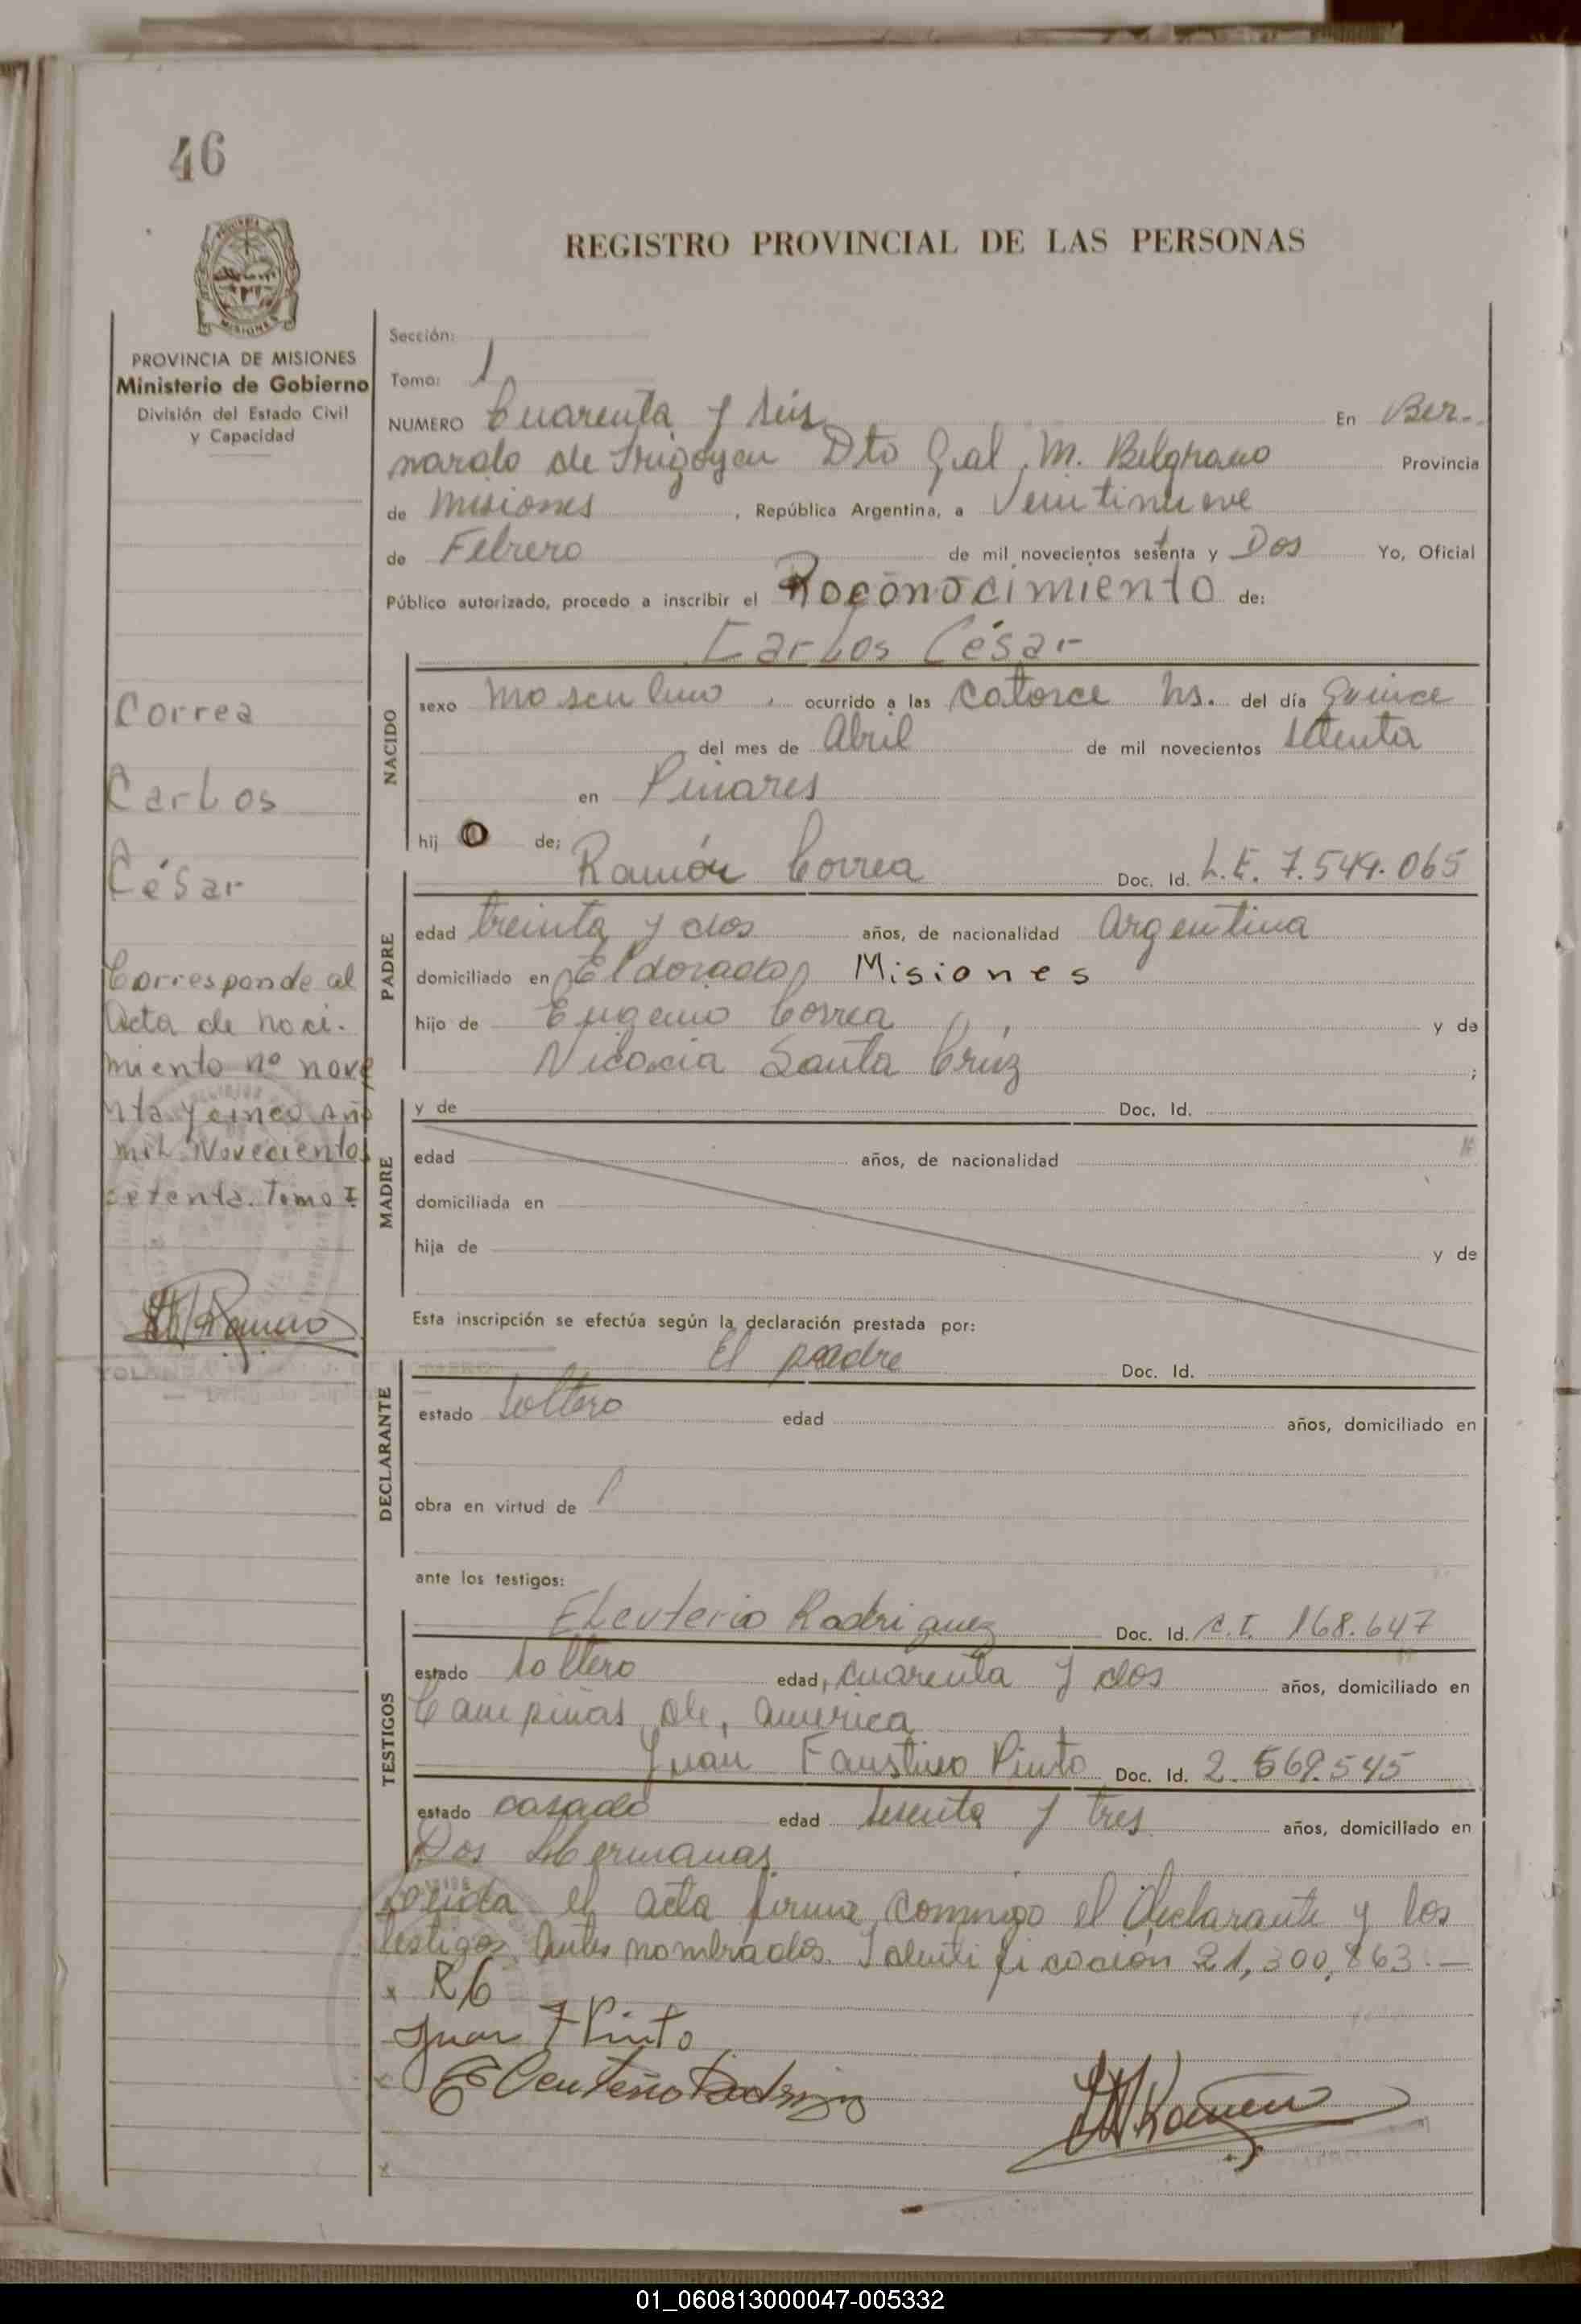 46
REGISTRO PROVINCIAL DE LAS PERSONAS
PROVINCIA DE MISIONES
Ministerio de Gobierno
División del Estado Civil
y Capacidad
Sección:
Tomo: 1
NUMERO Cuarenta y seis En Ber-
nardo de Irigoyen Dto Gral. M. Belgrano Provincia
de Misiones, República Argentina, a Veintinueve
de Febrero de mil novecientos sesenta y Dos Yo, Oficial
Público autorizado, procedo a inscribir el Roconocimiento de:
Carlos César
NACIDO
sexo masculino, ocurrido a las catorce hs. del día quince
del mes de Abril de mil novecientos setenta
en Pinares
hij o de:
Correa
Carlos
César
Corresponde al
Acta de naci-
miento nº nove
nta y cinco Año
mil Novecientos
setenta. Tomo I
PADRE
Ramón Correa Doc. Id. L.E. 7.549.065
edad treinta y dos años, de nacionalidad Argentina
domiciliado en Eldorado, Misiones
hijo de Eugenio Correa y de
Nicasia Santa Crúz ;
MADRE
y de Doc. Id.
edad años, de nacionalidad
domiciliada en
hija de y de
Esta inscripción se efectúa según la declaración prestada por:
DECLARANTE
El padre Doc. Id.
estado soltero edad años, domiciliado en
obra en virtud de
ante los testigos:
TESTIGOS
Eleuterio Rodriguez Doc. Id. C.I. 168.647
estado soltero edad, cuarenta y dos años, domiciliado en
Campiñas de, America
Juan Faustino Pinto Doc. Id. 2.569.545
estado casado edad sesenta y tres años, domiciliado en
Dos Hermanas
Leida el acta firma conmigo el declarante y los
testigos antes nombrados. Identificación 21,300,863.—
x R/6
Juan F Pinto
x Eleuterio Rodriguez
x
01_060813000047-005332